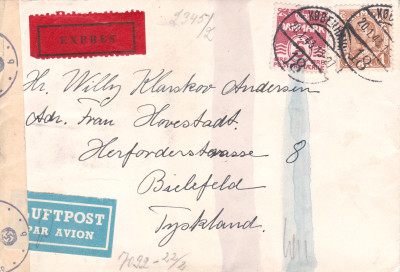 2345/2
EXPRES
KØBENHAVN
DANMARK
18
18
Hr. Willy Klarskov Andersen
Adr. Frau Hovestadt.
Herforderstrasse 8
Bielefeld
Tyskland.
LUFTPOST
PAR AVION
b
b